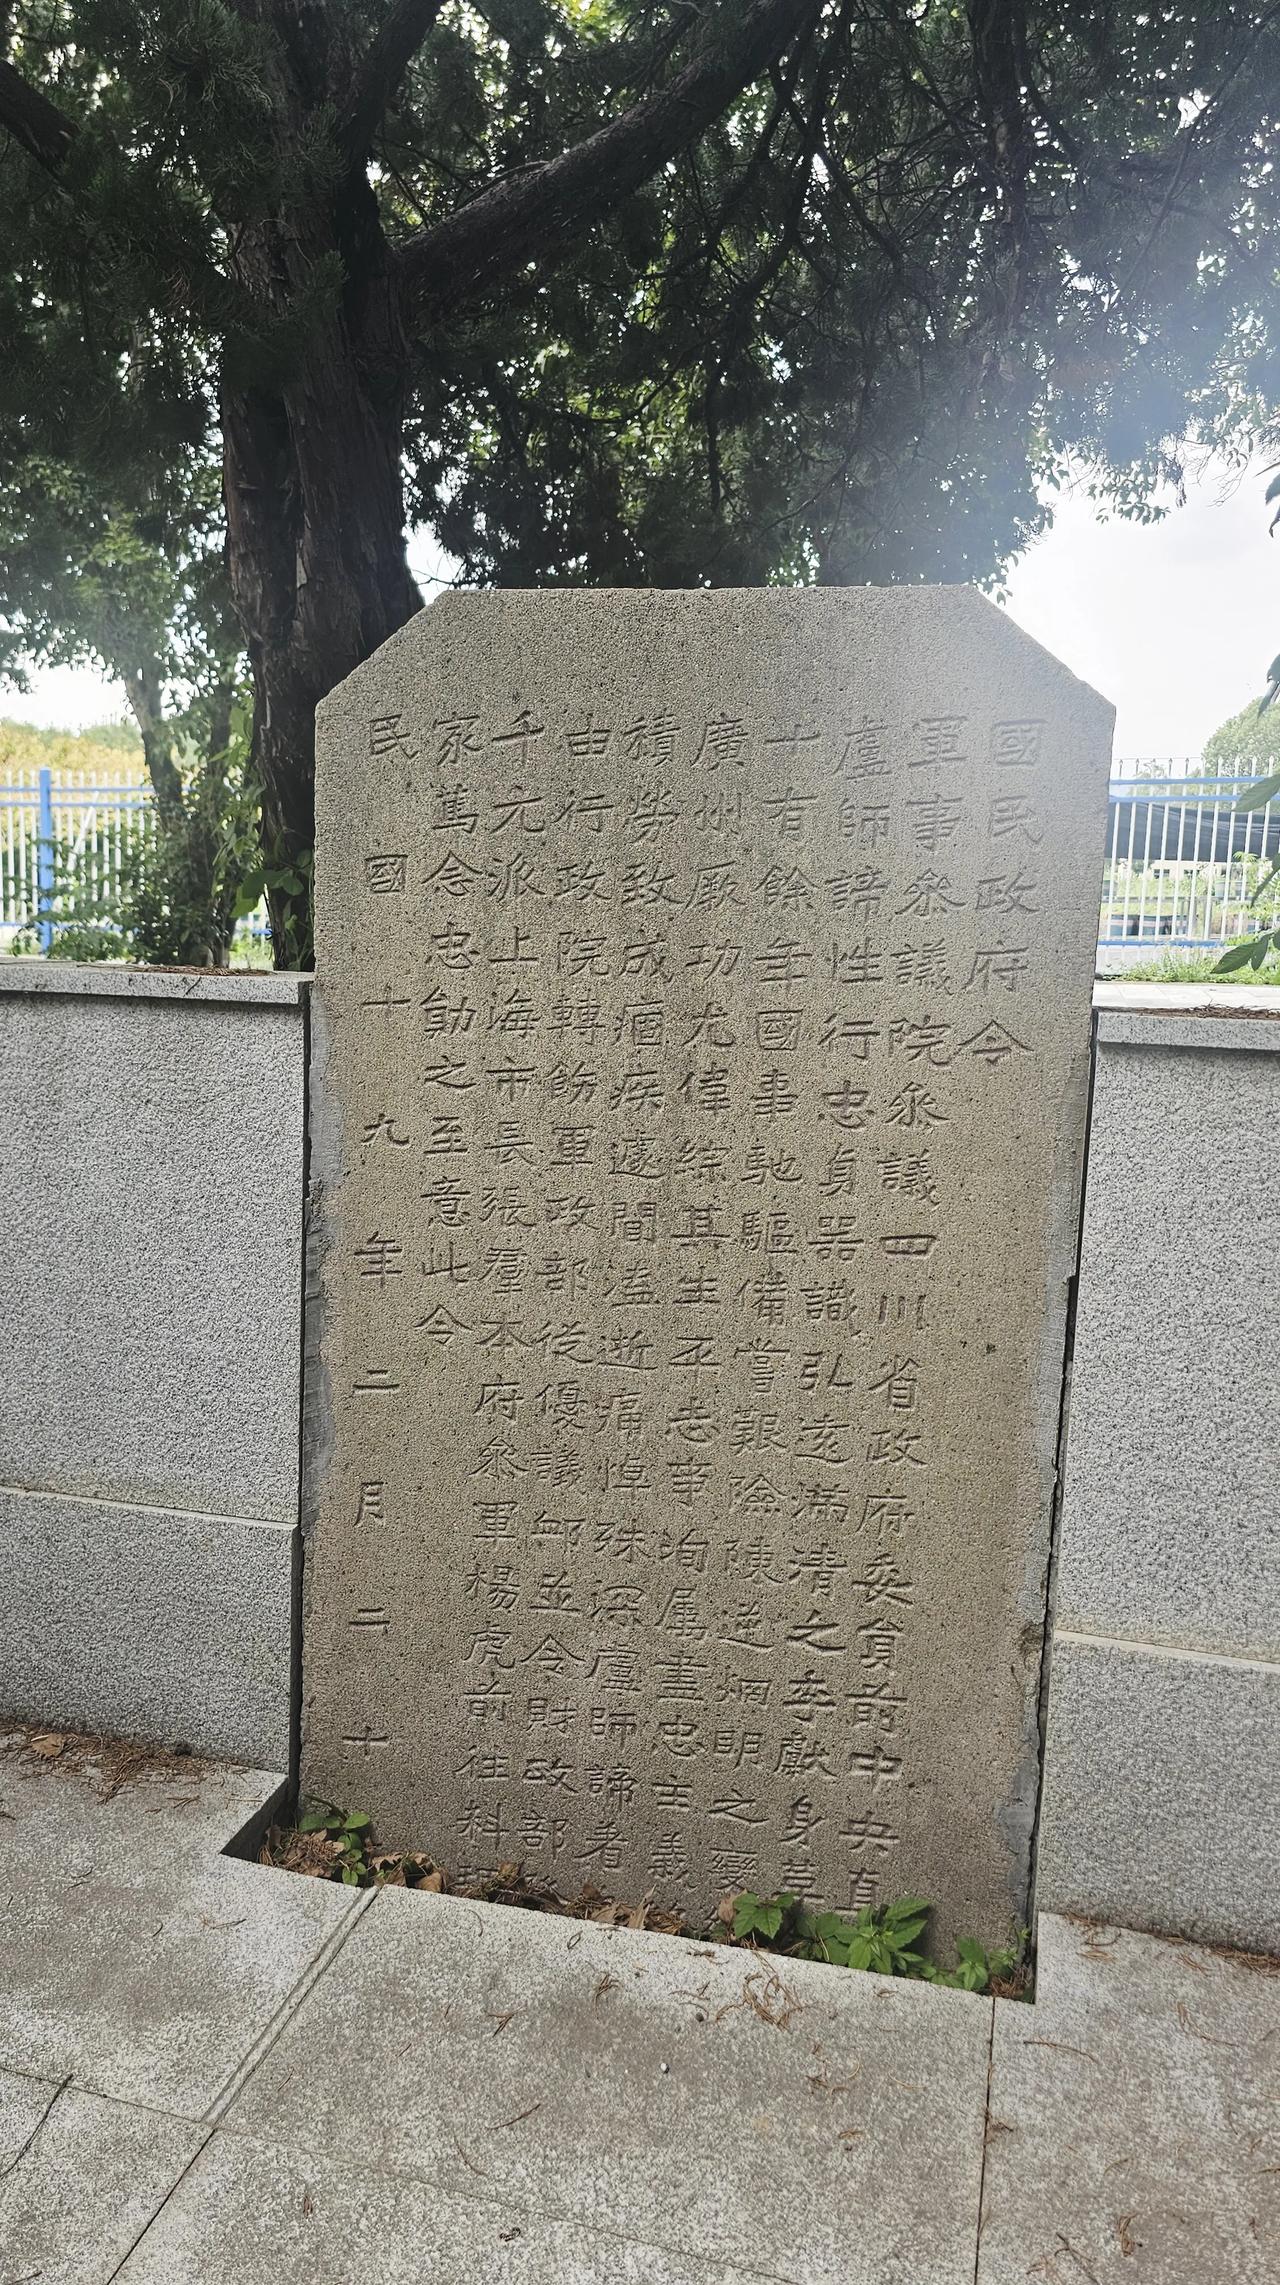 國民政府令
軍事叅議院叅議四川省政府委員前中央直
盧師諦性行忠貞器識弘遠滿清之季獻身革
十有餘年國事馳驅備嘗艱險陳逆烱明之變
廣州厥功尤偉綜其生平志事洵屬盡忠主義
積勞致成痼疾遽聞溘逝痛悼殊深盧師諦著
由行政院轉飭軍政部從優議卹並令財政部
千元派上海市長張羣本府叅軍楊虎前往料
家篤念忠勛之至意此令
民國十九年二月二十